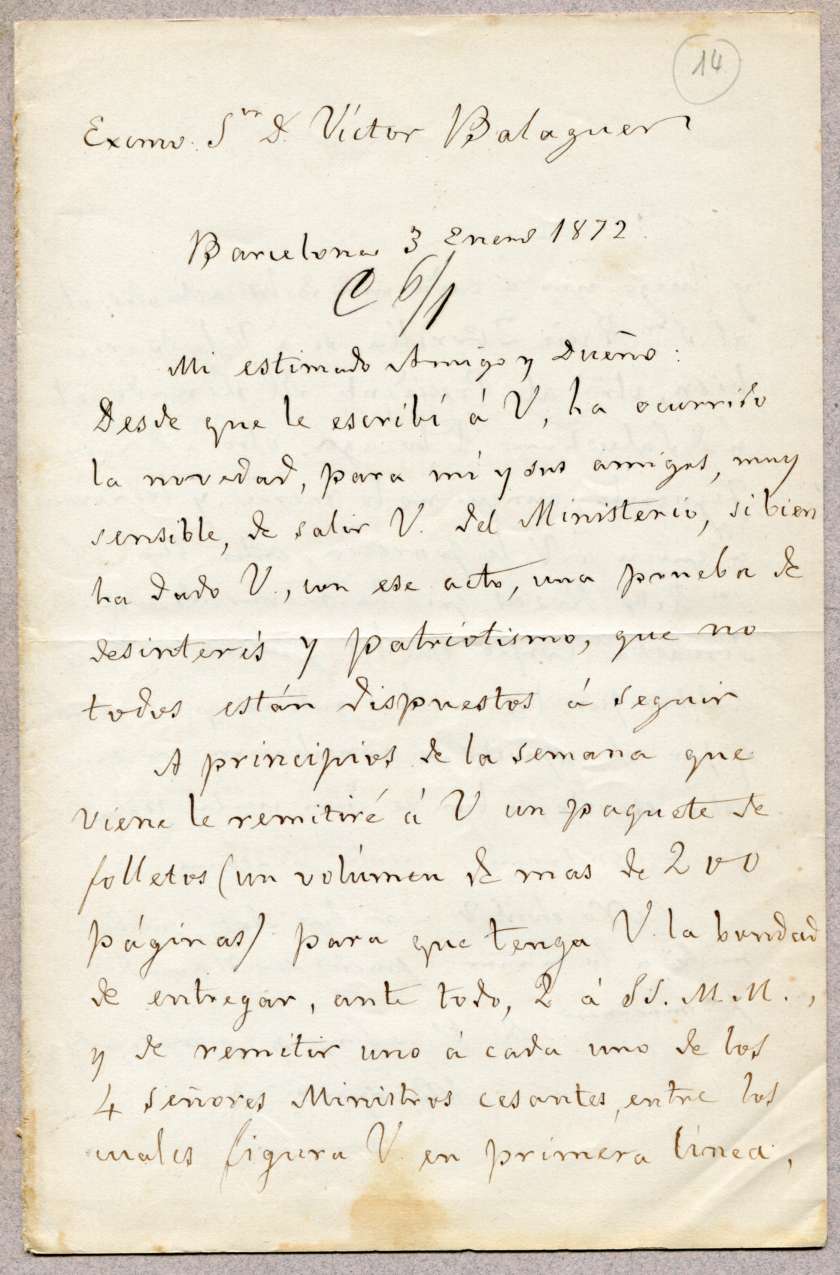 14
Excmo. Sᵒʳ D. Víctor Balaguer
Barcelona 3 Enero 1872.
C 6/1
Mi estimado Amigo y Dueño:
Desde que le escribí á V, ha ocurrido
la novedad, para mí y sus amigos, muy
sensible, de salir V. del Ministerio, si bien
ha dado V., con ese acto, una prueba de
desinterés y patriotismo, que no
todos están dispuestos á seguir
A principios de la semana que
viene le remitiré á V un paquete de
folletos (un volúmen de mas de 200
páginas) para que tenga V. la bondad
de entregar, ante todo, 2 á SS. M.M.,
y de remitir uno á cada uno de los
4 señores Ministros cesantes, entre los
cuales figura V. en primera línea,